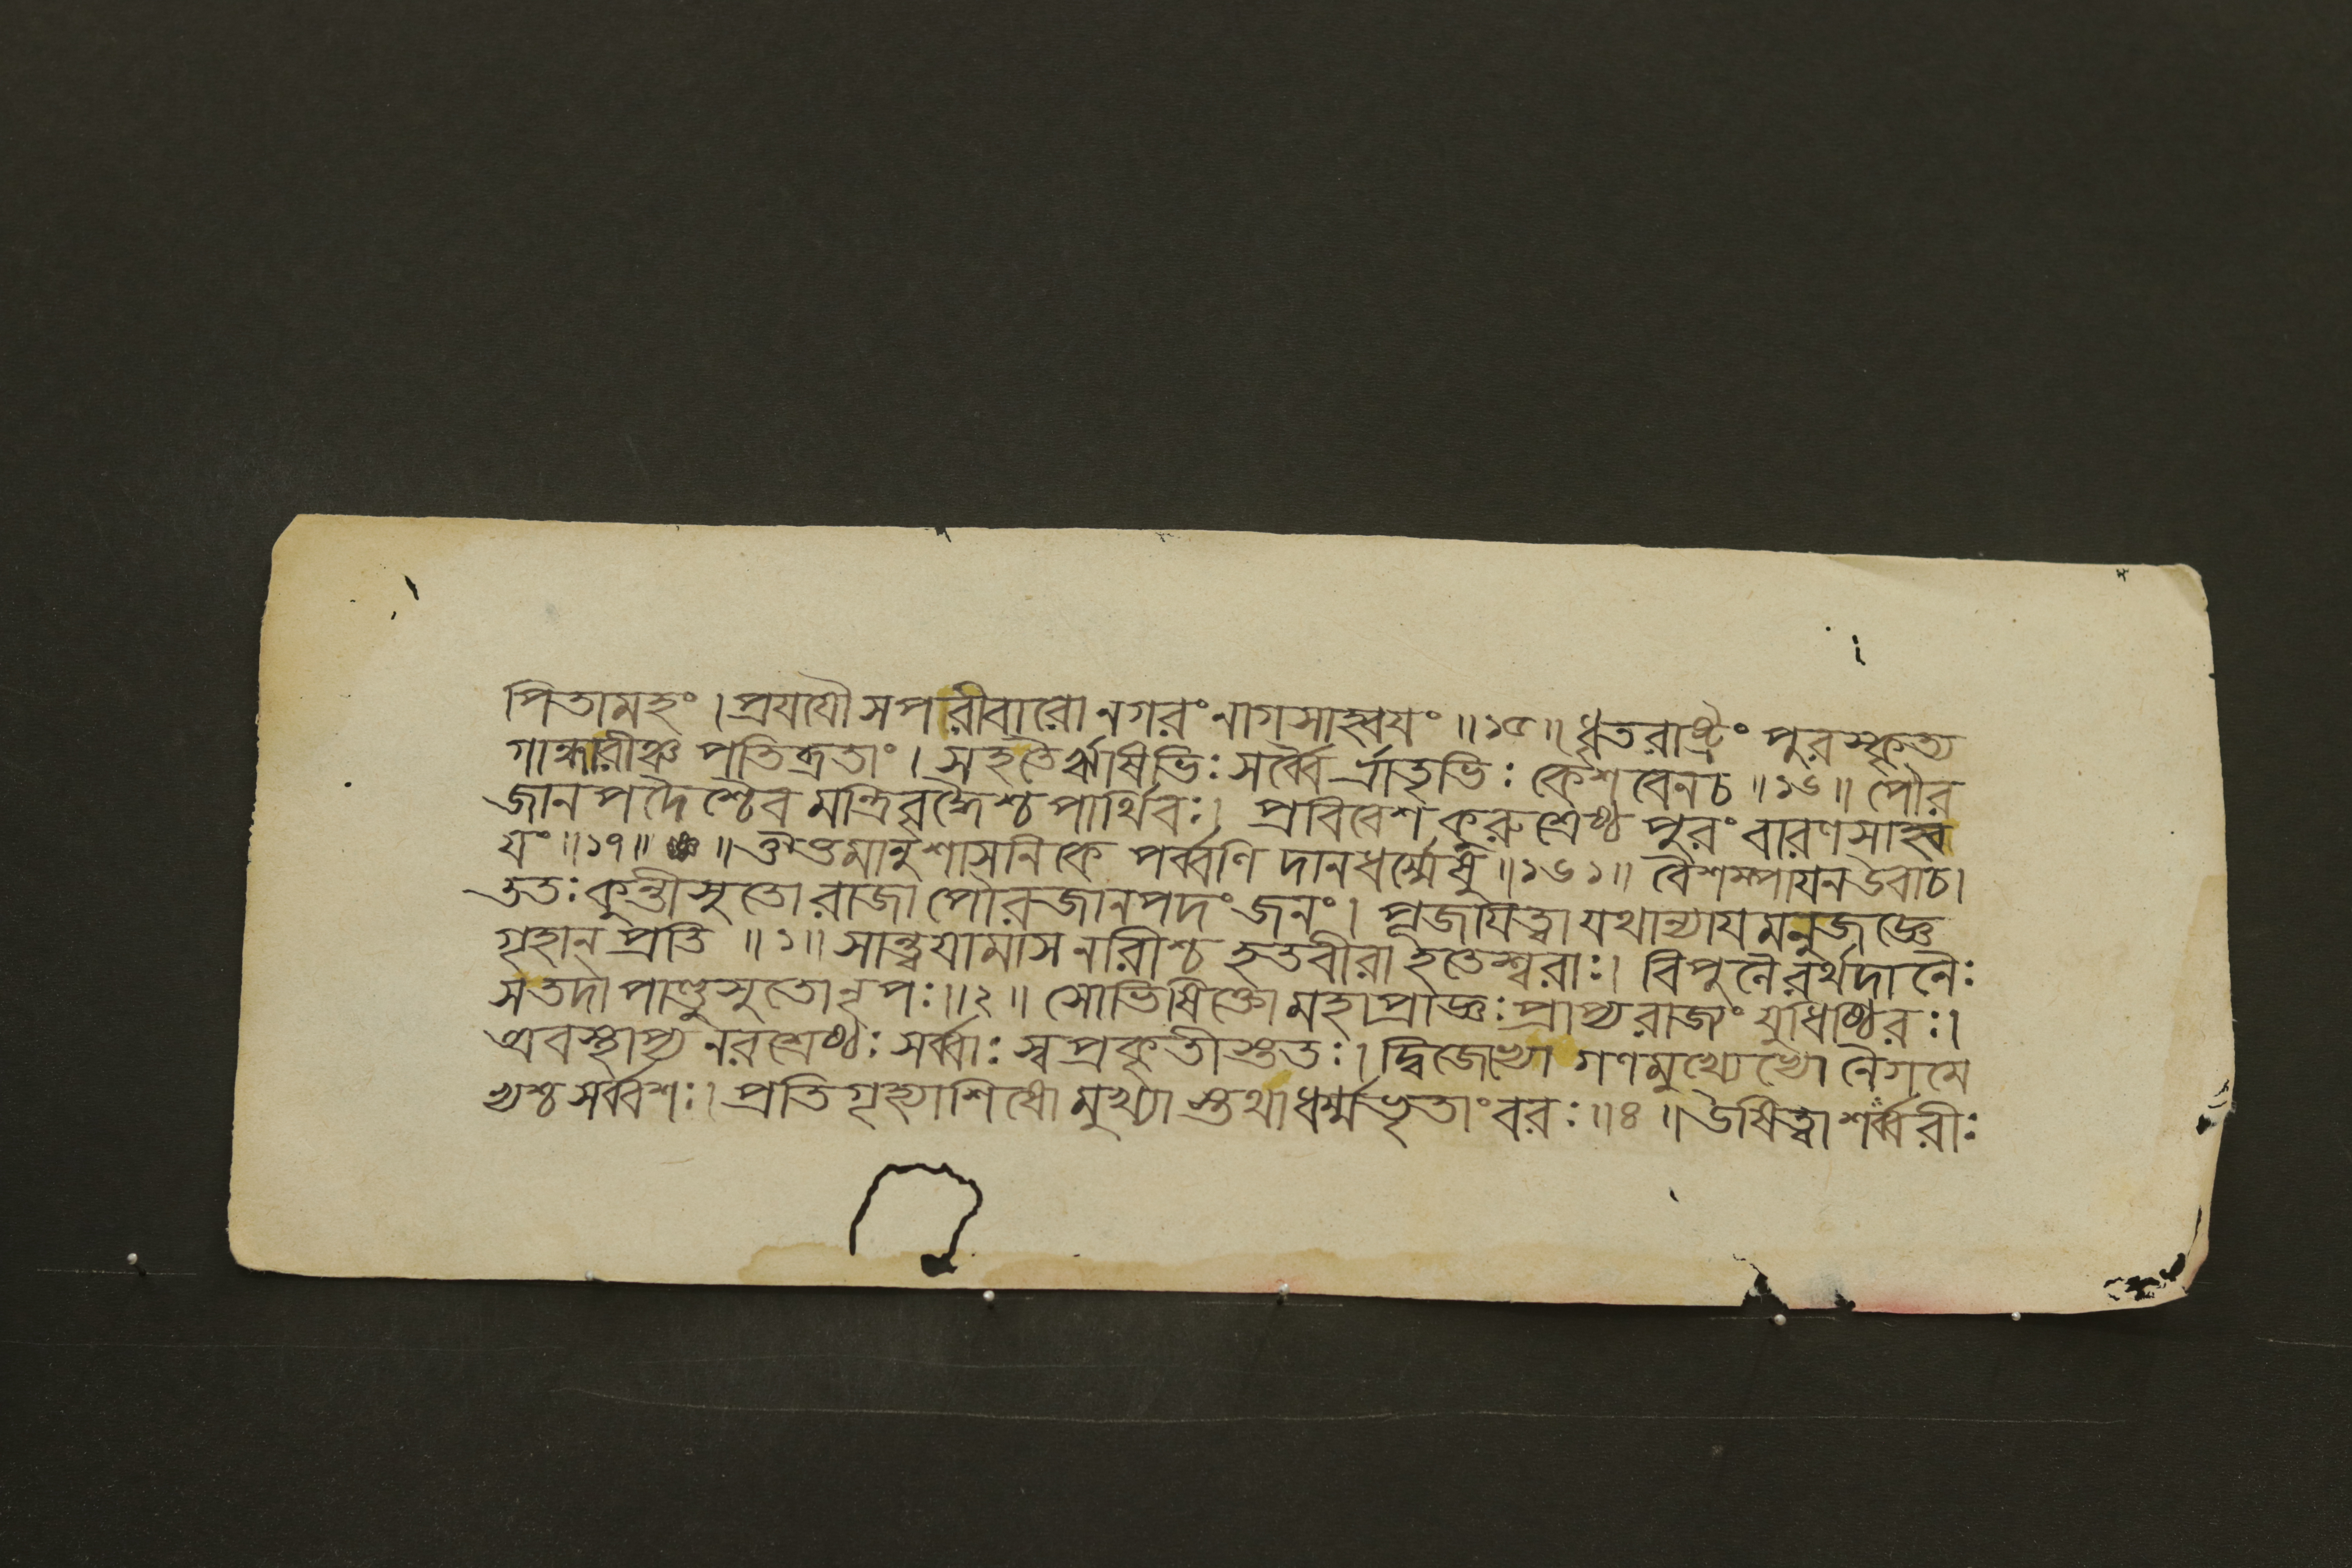 পিতামহং । প্রযযৌ সপরীবারো নগরং নাগসাহ্বযং ॥ ১৫ ॥ ধৃতরাষ্ট্রং পুরস্কৃত্য
গান্ধারীঞ্চ পতিব্রতাং । সহতৈ র্ঋষিভিঃ সর্ব্বৈ র্ভ্রাতৃভিঃ কেশবেনচ ॥ ১৬ ॥ পৌর
জানপদৈশ্চৈব মন্ত্রিবৃদ্ধৈশ্চ পার্থিবঃ । প্রবিবেশ কুরুশ্রেষ্ঠ পুরং বারণসাহ্ব
যং ॥ ১৭ ॥ ॥ মানুশাসনিকে পর্ব্বণি দানধর্ম্মেষু ॥ ১৬১ ॥ বৈশম্পাযন উবাচ ।
ততঃ কুন্তীসুতো রাজা পৌরজানপদং জনং । পূজযিত্বা যথান্যায মনুজজ্ঞে
গৃহান্ প্রতি ॥ ১ ॥ সান্ত্বযামাস নারীশ্চ হতবীরা হতেশ্বরাঃ । বিপুলৈ রর্থদানৈঃ
সতদা পাণ্ডুসুতো নৃপঃ ॥ ২ ॥ সোভিষিক্তো মহাপ্রাজ্ঞঃ প্রাপ্য রাজ্যং যুধিষ্ঠিরঃ ।
অবস্থাপ্য নরশ্রেষ্ঠঃ সর্ব্বাঃ স্বপ্রকৃতীস্ততঃ । দ্বিজেভ্যো গণমুখ্যেভ্যো নৈগমে
ভ্যশ্চ সর্ব্বশঃ । প্রতিগৃহ্যাশিষো মুখ্যা স্তথা ধর্ম্মভৃতাং বরঃ ॥ ৪ ॥ উষিত্বা শর্ব্বরীঃ